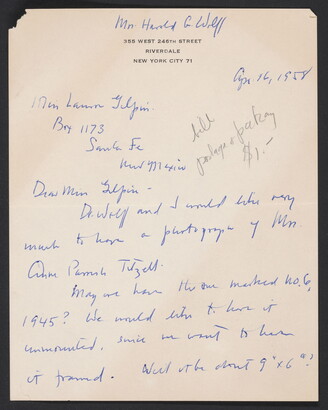 Mrs. Harold G. Wolff
355 WEST 246TH STREET
RIVERDALE
NEW YORK CITY 71
Apr. 16, 1958
Miss Laura Gilpin
Box 1173
Santa Fe
New Mexico
bill
postage & packing
$1.-
Dear Miss Gilpin -
Dr. Wolff and I would like very
much to have a photograph of Mrs.
Anne Parrish Titzell.
May we have the one marked no. 6,
1945? We would like to have it
unmounted, since we want to have
it framed. Will it be about 9" x 6"?